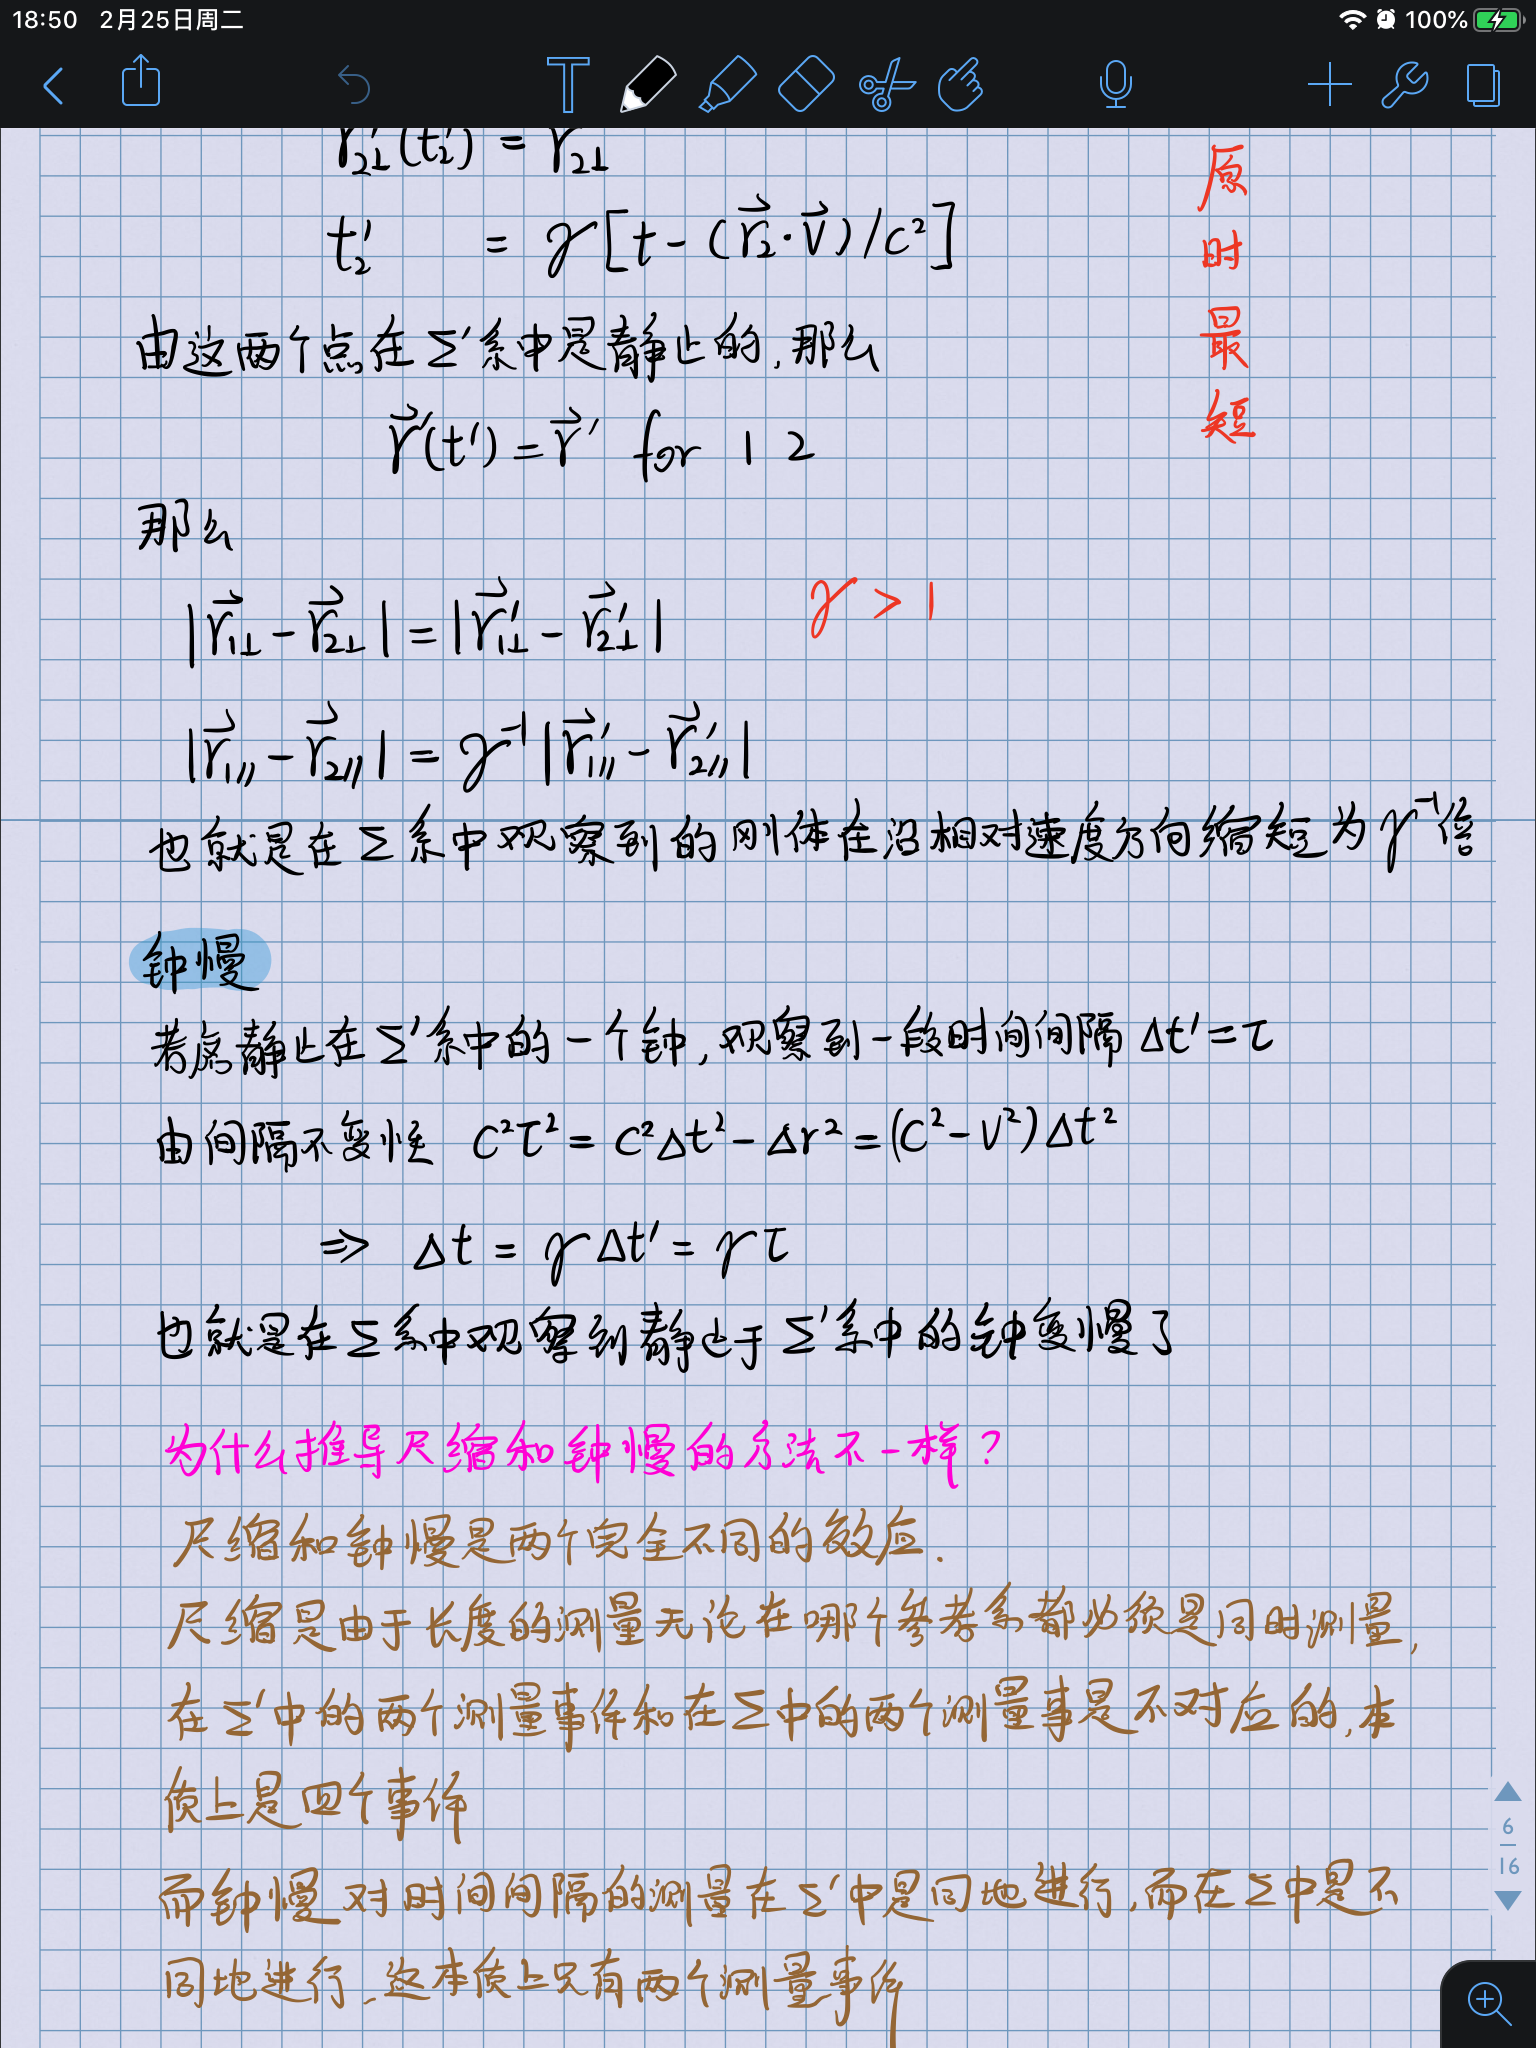 18:50 2月25日周二
100%
r⃗₂⊥′(t₂′) = r⃗₂⊥
原时最短
t₂′ = γ[t-(r⃗₂·V⃗)/c²]
由这两个点在Σ′系中是静止的,那么
r⃗′(t′)=r⃗′ for 1 2
那么
|r⃗₁⊥-r⃗₂⊥|=|r⃗₁⊥′-r⃗₂⊥′|
γ>1
|r⃗₁∥-r⃗₂∥|=γ⁻¹|r⃗₁∥′-r⃗₂∥′|
也就是在Σ系中观察到的刚体在沿相对速度方向缩短为γ⁻¹倍
钟慢
考虑静止在Σ′系中的一个钟,观察到一段时间间隔Δt′=τ
由间隔不变性 C²τ²=C²Δt²-Δr²=(C²-V²)Δt²
⇒ Δt=γΔt′=γτ
也就是在Σ系中观察到静止于Σ′系中的钟变慢了
为什么推导尺缩和钟慢的方法不一样?
尺缩和钟慢是两个完全不同的效应.
尺缩是由于长度的测量无论在哪个参考系都必须是同时测量,
在Σ′中的两个测量事件和在Σ中的两个测量事是不对应的,本
质上是四个事件
而钟慢对时间间隔的测量在Σ′中是同地进行,而在Σ中是不
同地进行,这本质上只有两个测量事件
6
16